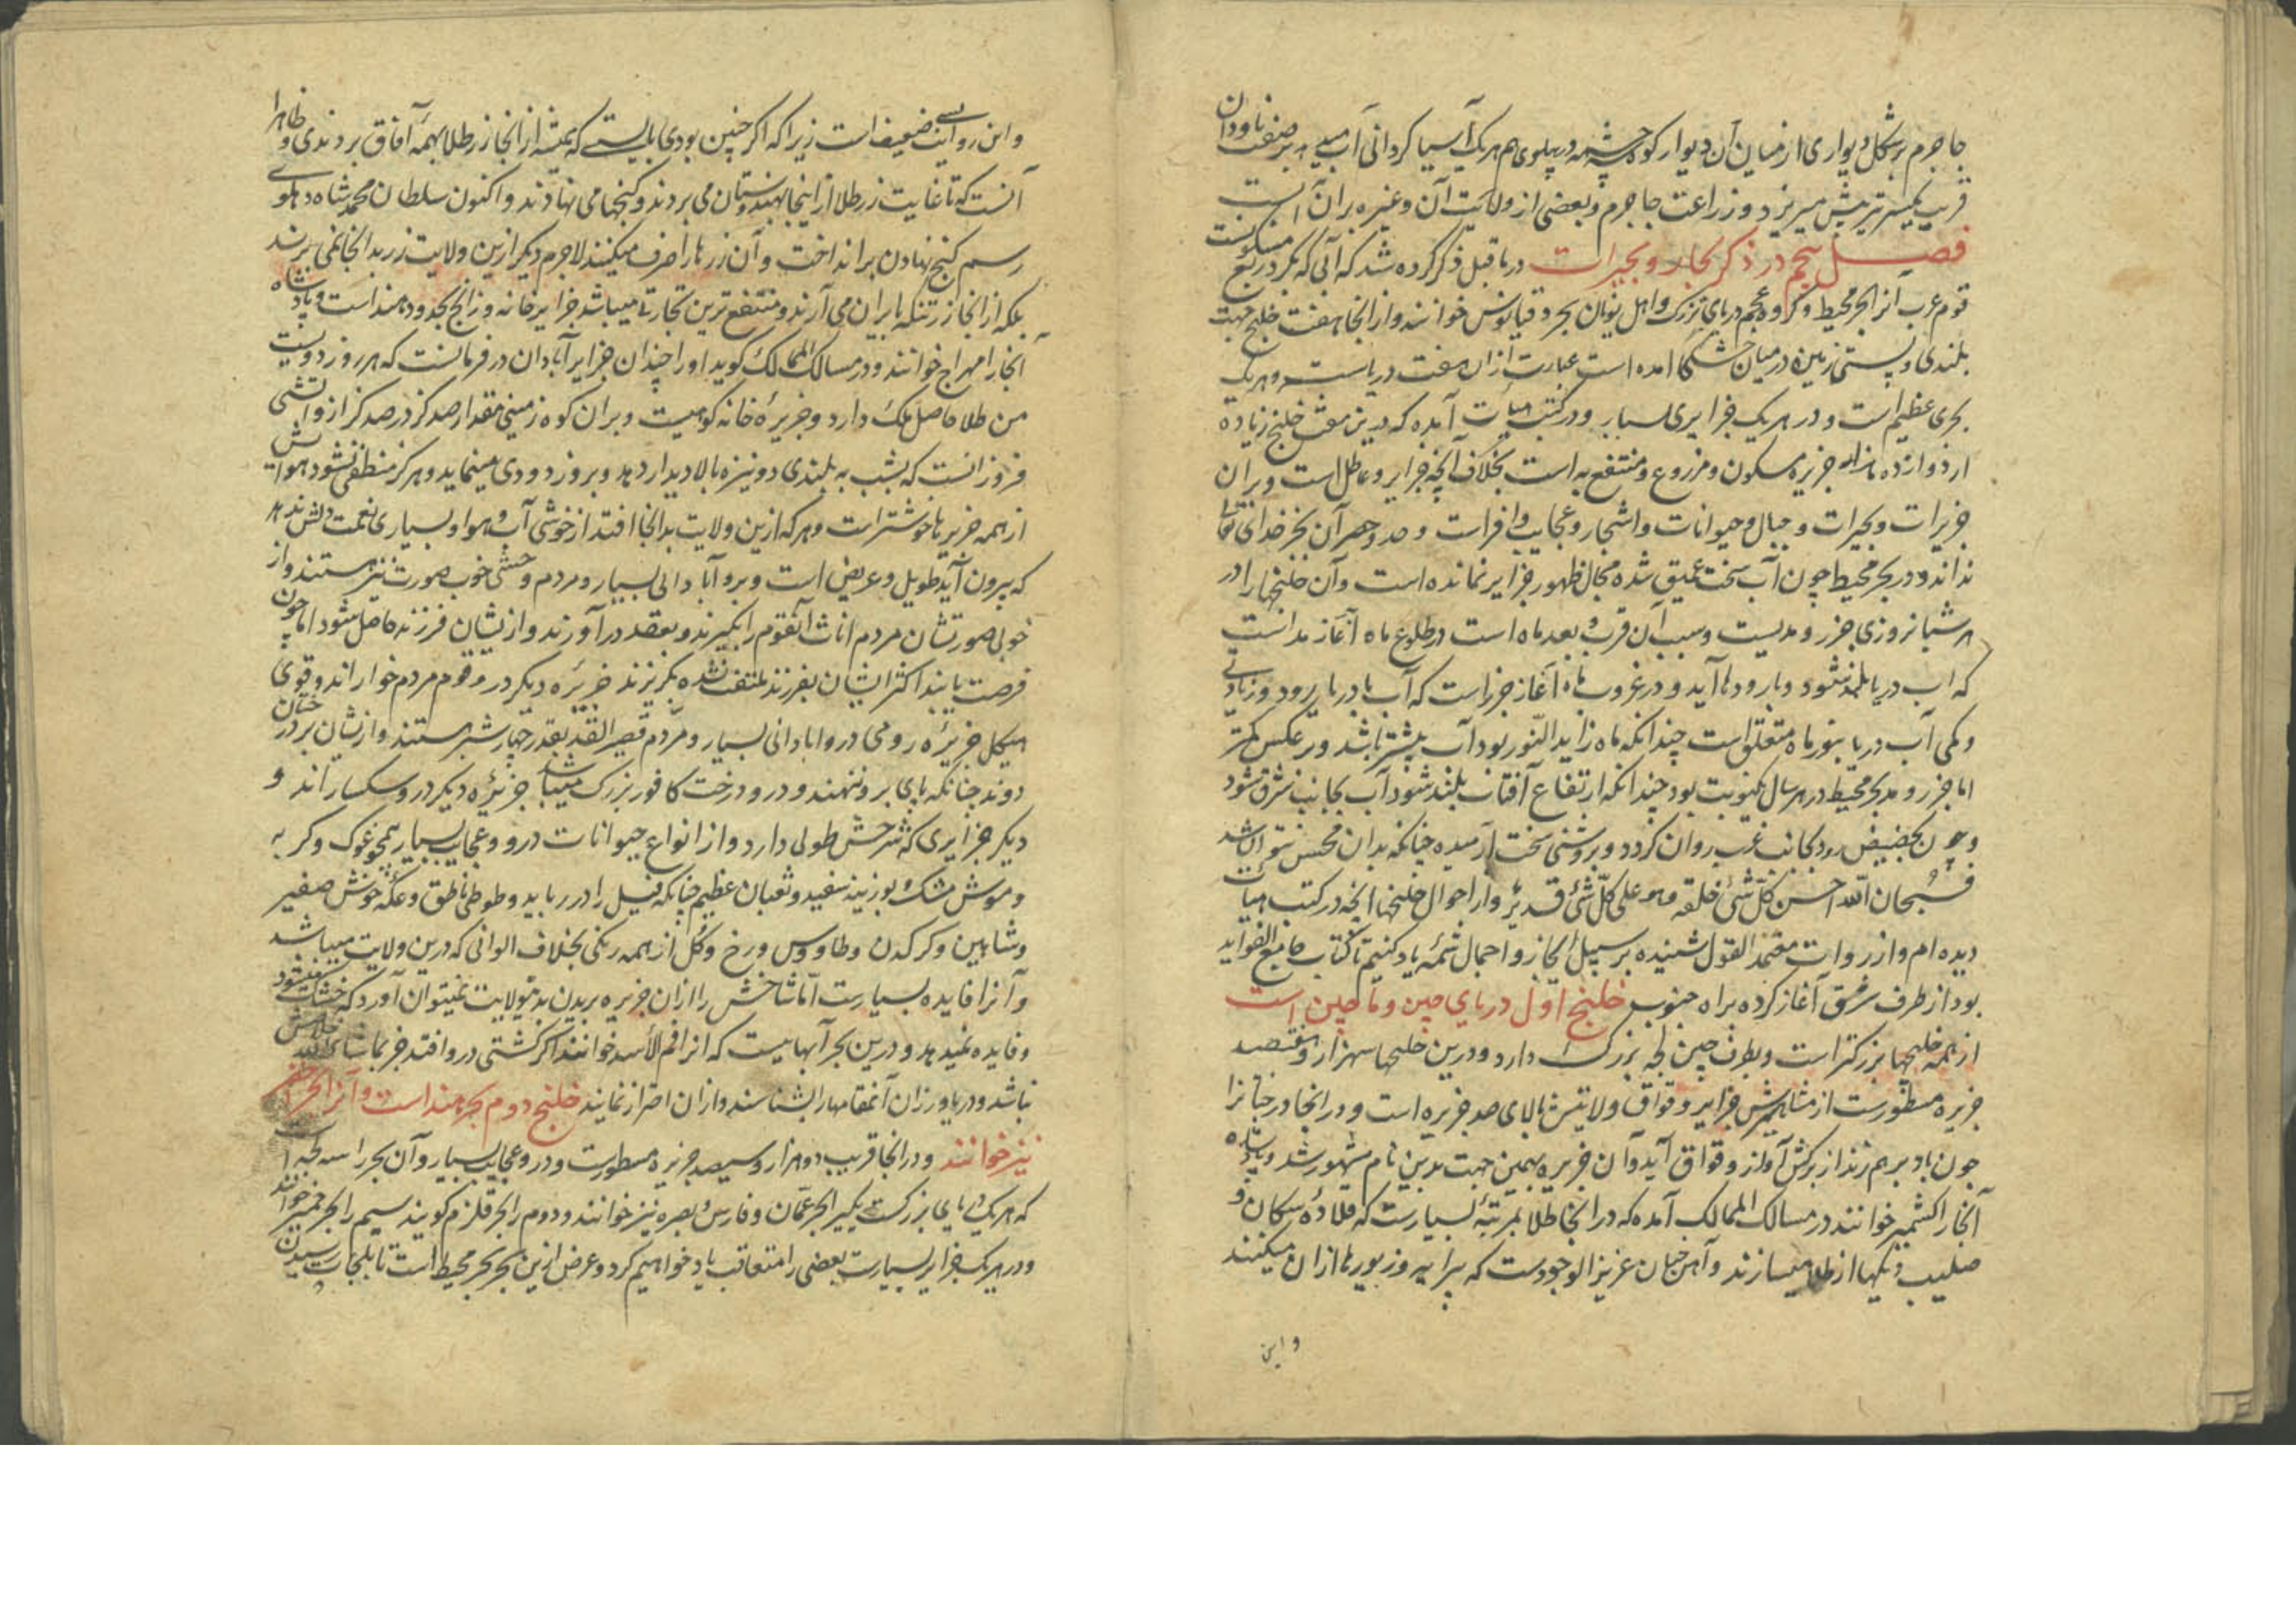 جاجرم بر شکل دیواری از میان آن دیوار کوه چشمه در پهلوی هم هر یک آسیا کردانی آب بر صفت ناودان
قریب یکتیر پیش میریزد و زراعت جاجرم و بعضی از ولایت آن و غیره بران آبست
فصل پنجم در ذکر بحار و بحیرات در ما قبل ذکر کرده شد که آبی که بکرد ربع مسکونست
قوم عرب آنرا بحر محیط و کروه عجم دریای بزرک و اهل یونان بحر اوقیانوس خوانند و از انجا هفت خلیج جهت
بلندی و پستی زمین در میان خشکی امده است عبارت ازان هفت دریاست و هر یک
بحری عظیم است و در هر یک جزایری بسیار و در کتب هیأت آمده که درین هفت خلیج زیاده
از دوازده هزار جزیره مسکون و مزروع و منتفع به است بخلاف آنچه جزایر و عاطل است و بران
جزیرات و بحیرات و جبال و حیوانات و اشجار و عجایب وافر است و حد و حصر آن بجز خدای تعالی
نداند و در بحر محیط چون آب سخت عمیق شده مجال ظهور جزایر نمانده است و آن خلیجها را در
هر شبانروزی جزر و مدیست و سبب آن قرب و بعد ماه است در طلوع ماه آغاز مد است
که اب دریا بلند شود و با رودها آید و در غروب ماه آغاز جزر است که آب با دریا رود و زیادتی
و کمی آب دریا بنور ماه متعلق است چندانکه ماه زاید النور بود آب بیشتر باشد و بر عکس کمتر
اما جزر و مد بحر محیط در هر سال یکنوبت بود چندانکه ارتفاع آفتاب بلند شود آب بجانب شرق شود
و چون بحضیض رود بجانب غرب روان کردد و بروشنی سخت آرمیده چنانکه بدان محسن نتوان شد
فسبحان الله احسن کل شئ خلقه و هو علی کل شئ قدیر و از احوال خلیجها انچه در کتب هیأت
دیده ام و از روات معتمد القول شنیده بر سبیل ایجاز و اجمال شمه یاد کنیم تا کتاب جامع الفواید
بود از طرف شرق آغاز کرده براه جنوب خلیج اول دریای چین و ماچین است
از همه خلیجها بزرکتر است و بطرف چین لجه بزرک دارد و درین خلیجها سهزار و هفتصد
جزیره مسطورست از مشاهیرش جزایر وقواق ولایتش بالای صد جزیره است و در انجا درختانرا
چون باد بر هم زند از برکش آواز وقواق آید و آن جزیره بهمین جهت بدین نام مشهور شد و پادشاه
آنجا را کشمیر خوانند در مسالک الممالک آمده که در انجا طلا بمرتبه بسیارست که قلاده سکان و
صلیب و یکها از طلا میسازند و آهن چنان عزیز الوجودست که پیرایه و زیورها ازان میکنند
و این
و این روایت ضعیف است زیرا که اکر چنین بودی بایستی که همیشه از انجا زر طلا بهمه آفاق بردندی و ظاهرا
آنست که تا غایت زر طلا از اینجا بهندوستان می بردند و کنجها می نهادند و اکنون سلطان محمد شاه دهلوی
رسم کنج نهادن بر انداخت و آن زرها را صرف میکنند لاجرم دیکر ازین ولایت زر بدانجا نمی برند
بلکه از انجا زر تنکه بایران می آرند و منتفع ترین تجارتی میباشد جزایر خانه و زانج بحدود هند است و پادشاه
آنجا را مهراج خوانند و در مسالک الممالک کوید او را چندان جزایر آبادان در فرمانست که هر روز دویست
من طلا حاصل ملک دارد و جزیره خانه کوهیست و بران کوه زمینی مقدار صد کز در صد کز ازو آتشی
فروزانست که بشب به بلندی دو نیزه بالا دیدار دهد و بروز دودی مینماید و هرکز منطفی نشود هوایش
از همه جزیرها خوشتر است و هر که ازین ولایت بدانجا افتد از خوشی آب و هوا و بسیاری نعمت دلش ندهد
که بیرون آید طویل و عریض است و برو آبادانی بسیار و مردم وحشی خوب صورت نیز هستند و از
خوبی صورتشان مردم اناث آنقوم را بکیرند و بعقد در آورند و از یشان فرزند حاصل شود اما چون
فرصت یابند اکثر ایشان بفرزند ملتفت نشده بکریزند جزیره دیکر درو قوم مردم خوار اند و قوی
هیکل جزیره رومی درو ابادانی بسیار و مردم قصیر القد بقدر چهار شبر هستند و ازیشان بر درختان
دوند چنانکه پای برو ننهند و درو درخت کافور بزرک میباشد جزیره دیکر درو سکسار اند و
دیکر جزایری که شرحش طولی دارد و از انواع حیوانات درو و عجایب بسیار همچو غوک و کربه
و موش مشک و بوزینه سفید و ثعبان عظیم چنانکه فیل را در رباید و طوطی ناطق و عکه خوش صفیر
و شاهین و کرکدن و طاووس و رخ و کل از همه رنکی بخلاف الوانی که درین ولایت میباشد
و آنرا فایده بسیارست اما شاخش را ازان جزیره بریدن بدینولایت نمیتوان آورد که خشک میشود
و فایده نمیدهد و درین بحر آبهاییست که انرا فم الأسد خوانند اکر کشتی درو افتد جز بماشاء الله خلاصش
نباشد و دریاورزان آنمقامها را بشناسند و ازان احتراز نمایند خلیج دوم بحر هند است و آنرا بحر اخضر
نیز خوانند و در انجا قریب دو هزار و سیصد جزیره مسطورست و درو عجایب بسیار و آن بحر را سه لجه است
که هر یک دریای بزرکست یکی بحر عمان و فارس و بصره نیز خوانند و دوم را بحر قلزم کویند سیم را بحر حمیر خوانند
و در هر یک جزایر بسیارست بعضی را متعاقب یاد خواهیم کرد و عرض ازین بحر بحر محیط است تا بلجات رسیدن